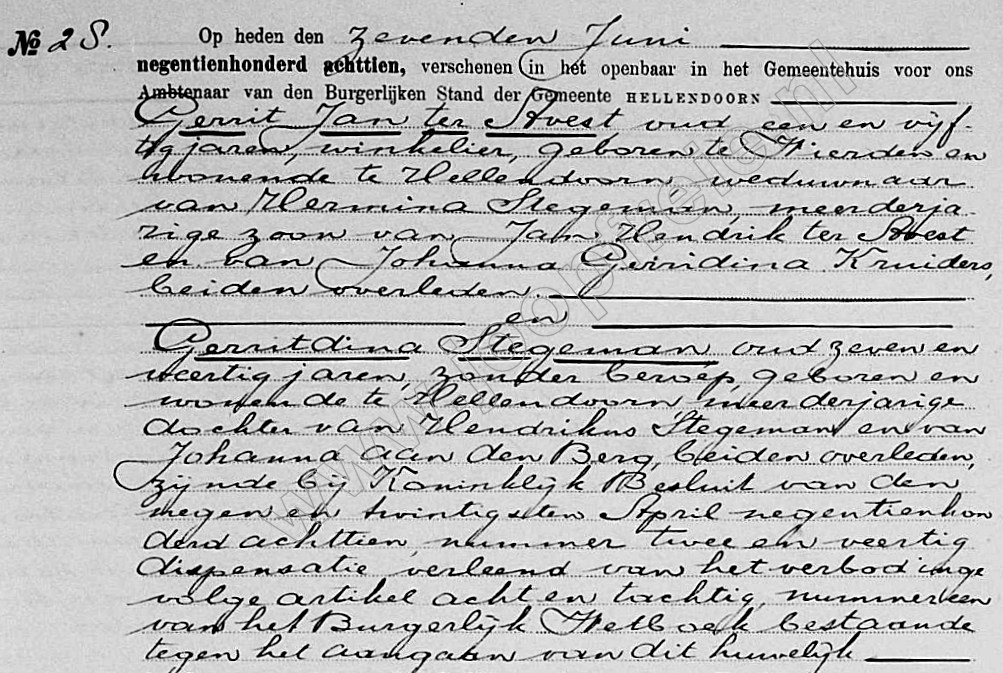 № 28. Op heden den zevenden Juni
negentienhonderd achttien, verschenen in het openbaar in het Gemeentehuis voor ons
Ambtenaar van den Burgerlijken Stand der Gemeente HELLENDOORN
Gerrit Jan ter Avest oud een en vijf-
tig jaren, winkelier, geboren te Wierden en
wonende te Hellendoorn, weduwnaar
van Hermina Stegeman, meerderja-
rige zoon van Jan Hendrik ter Avest
en van Johanna Gerridina Kruiders,
beiden overleden.
en
Gerritdina Stegeman oud zeven en
veertig jaren, zonder beroep, geboren en
wonende te Hellendoorn, meerderjarige
dochter van Hendrikus Stegeman en van
Johanna aan den Berg, beiden overleden,
zijnde bij Koninklijk Besluit van den
negen en twintigsten April negentienhon
derd achttien, nummer twee en veertig
dispensatie verleend van het verbod inge
volge artikel acht en tachtig, nummer een
van het Burgerlijk Wetboek bestaande
tegen het aangaan van dit huwelijk